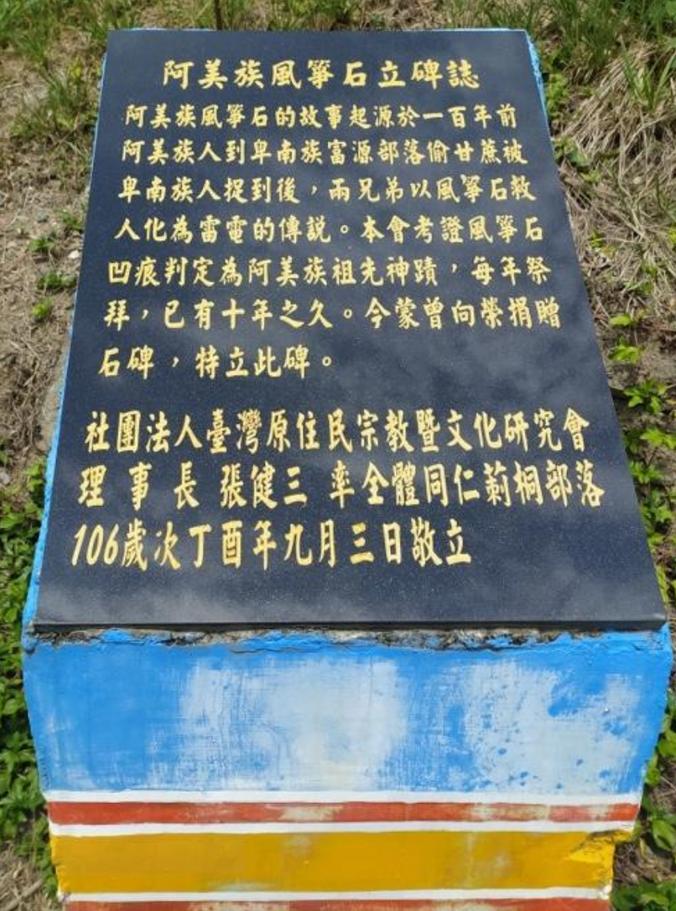 阿美族風箏石立碑誌
阿美族風箏石的故事起源於一百年前
阿美族人到卑南族富源部落偷甘蔗被
卑南族人捉到後，兩兄弟以風箏石救
人化為雷電的傳說。本會考證風箏石
凹痕判定為阿美族祖先神蹟，每年祭
拜，已有十年之久。今蒙曾向榮捐贈
石碑，特立此碑。
社團法人臺灣原住民宗教暨文化研究會
理事長 張健三 率全體同仁莿桐部落
106歲次丁酉年九月三日敬立